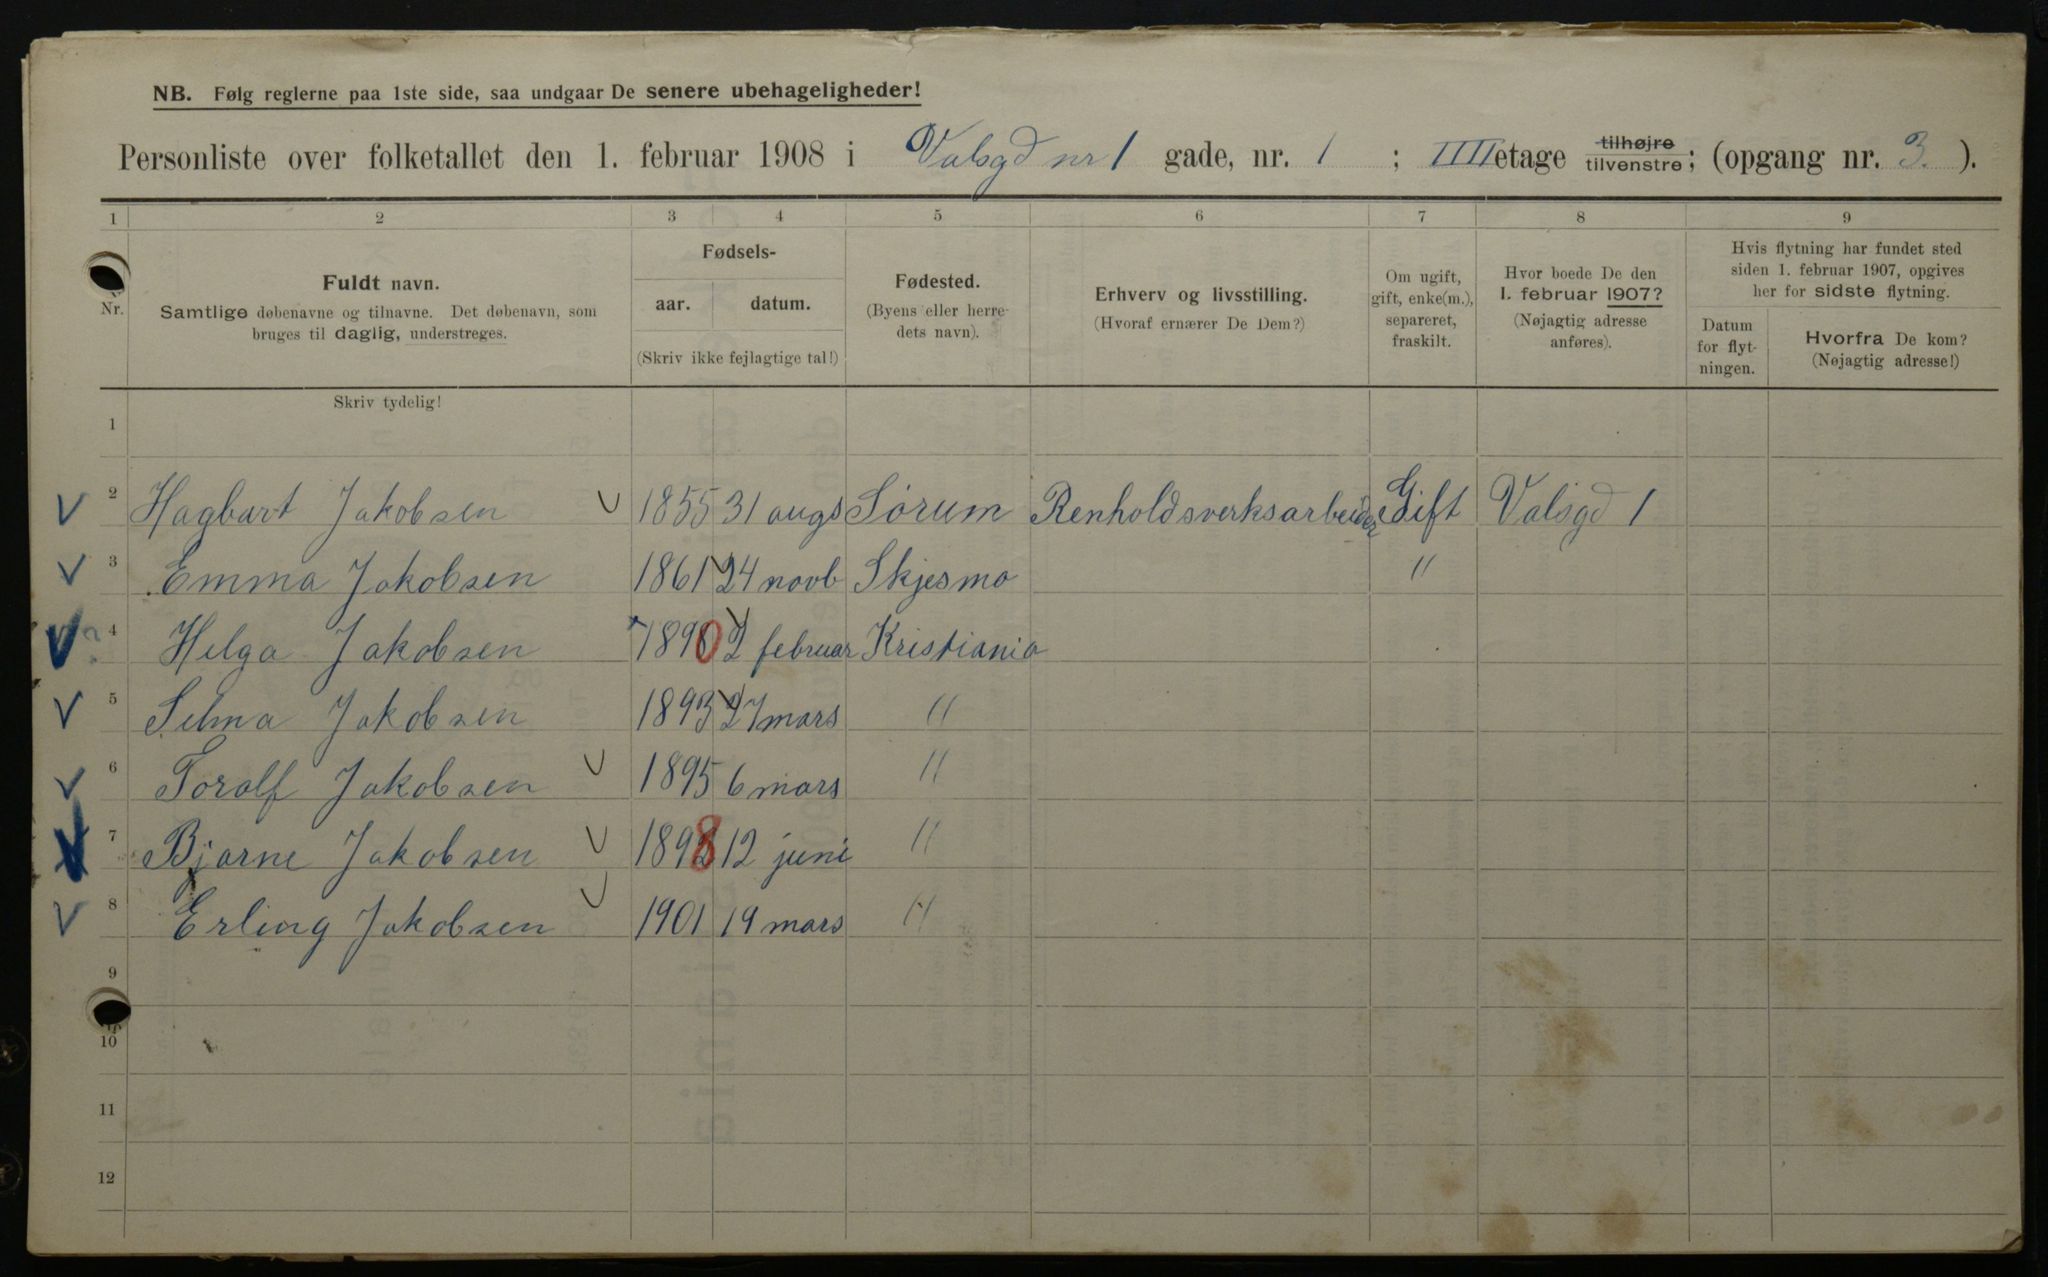 NB. Følg reglerne paa 1ste side, saa undgaar De senere ubehageligheder!
Personliste over folketallet den 1. februar 1908 i Valsgd nr 1 gade, nr. 1; IIII etage tilhøjre tilvenstre; (opgang nr. 3.).
1 2 3 4 5 6 7 8 9
Nr.
Fuldt navn.
Samtlige døbenavne og tilnavne. Det døbenavn, som
bruges til daglig, understreges.
Fødsels-
aar. datum.
(Skriv ikke fejlagtige tal!)
Fødested.
(Byens eller herre-
dets navn).
Erhverv og livsstilling.
(Hvoraf ernærer De Dem?)
Om ugift,
gift, enke(m.),
separeret,
fraskilt.
Hvor boede De den
1. februar 1907?
(Nøjagtig adresse
anføres).
Hvis flytning har fundet sted
siden 1. februar 1907, opgives
her for sidste flytning.
Datum
for flyt-
ningen.
Hvorfra De kom?
(Nøjagtig adresse!)
Skriv tydelig!
1
2 Hagbart Jakobsen 1855 31 augs Sørum Renholdsverksarbeider Gift Valsgd 1
3 Emma Jakobsen 1861 24 novb Skjesmo "
4 Helga Jakobsen 1890 2 februar Kristiania
5 Selma Jakobsen 1893 27 mars "
6 Toralf Jakobsen 1895 6 mars "
7 Bjarne Jakobsen 1898 12 juni "
8 Erling Jakobsen 1901 19 mars "
9
10
11
12